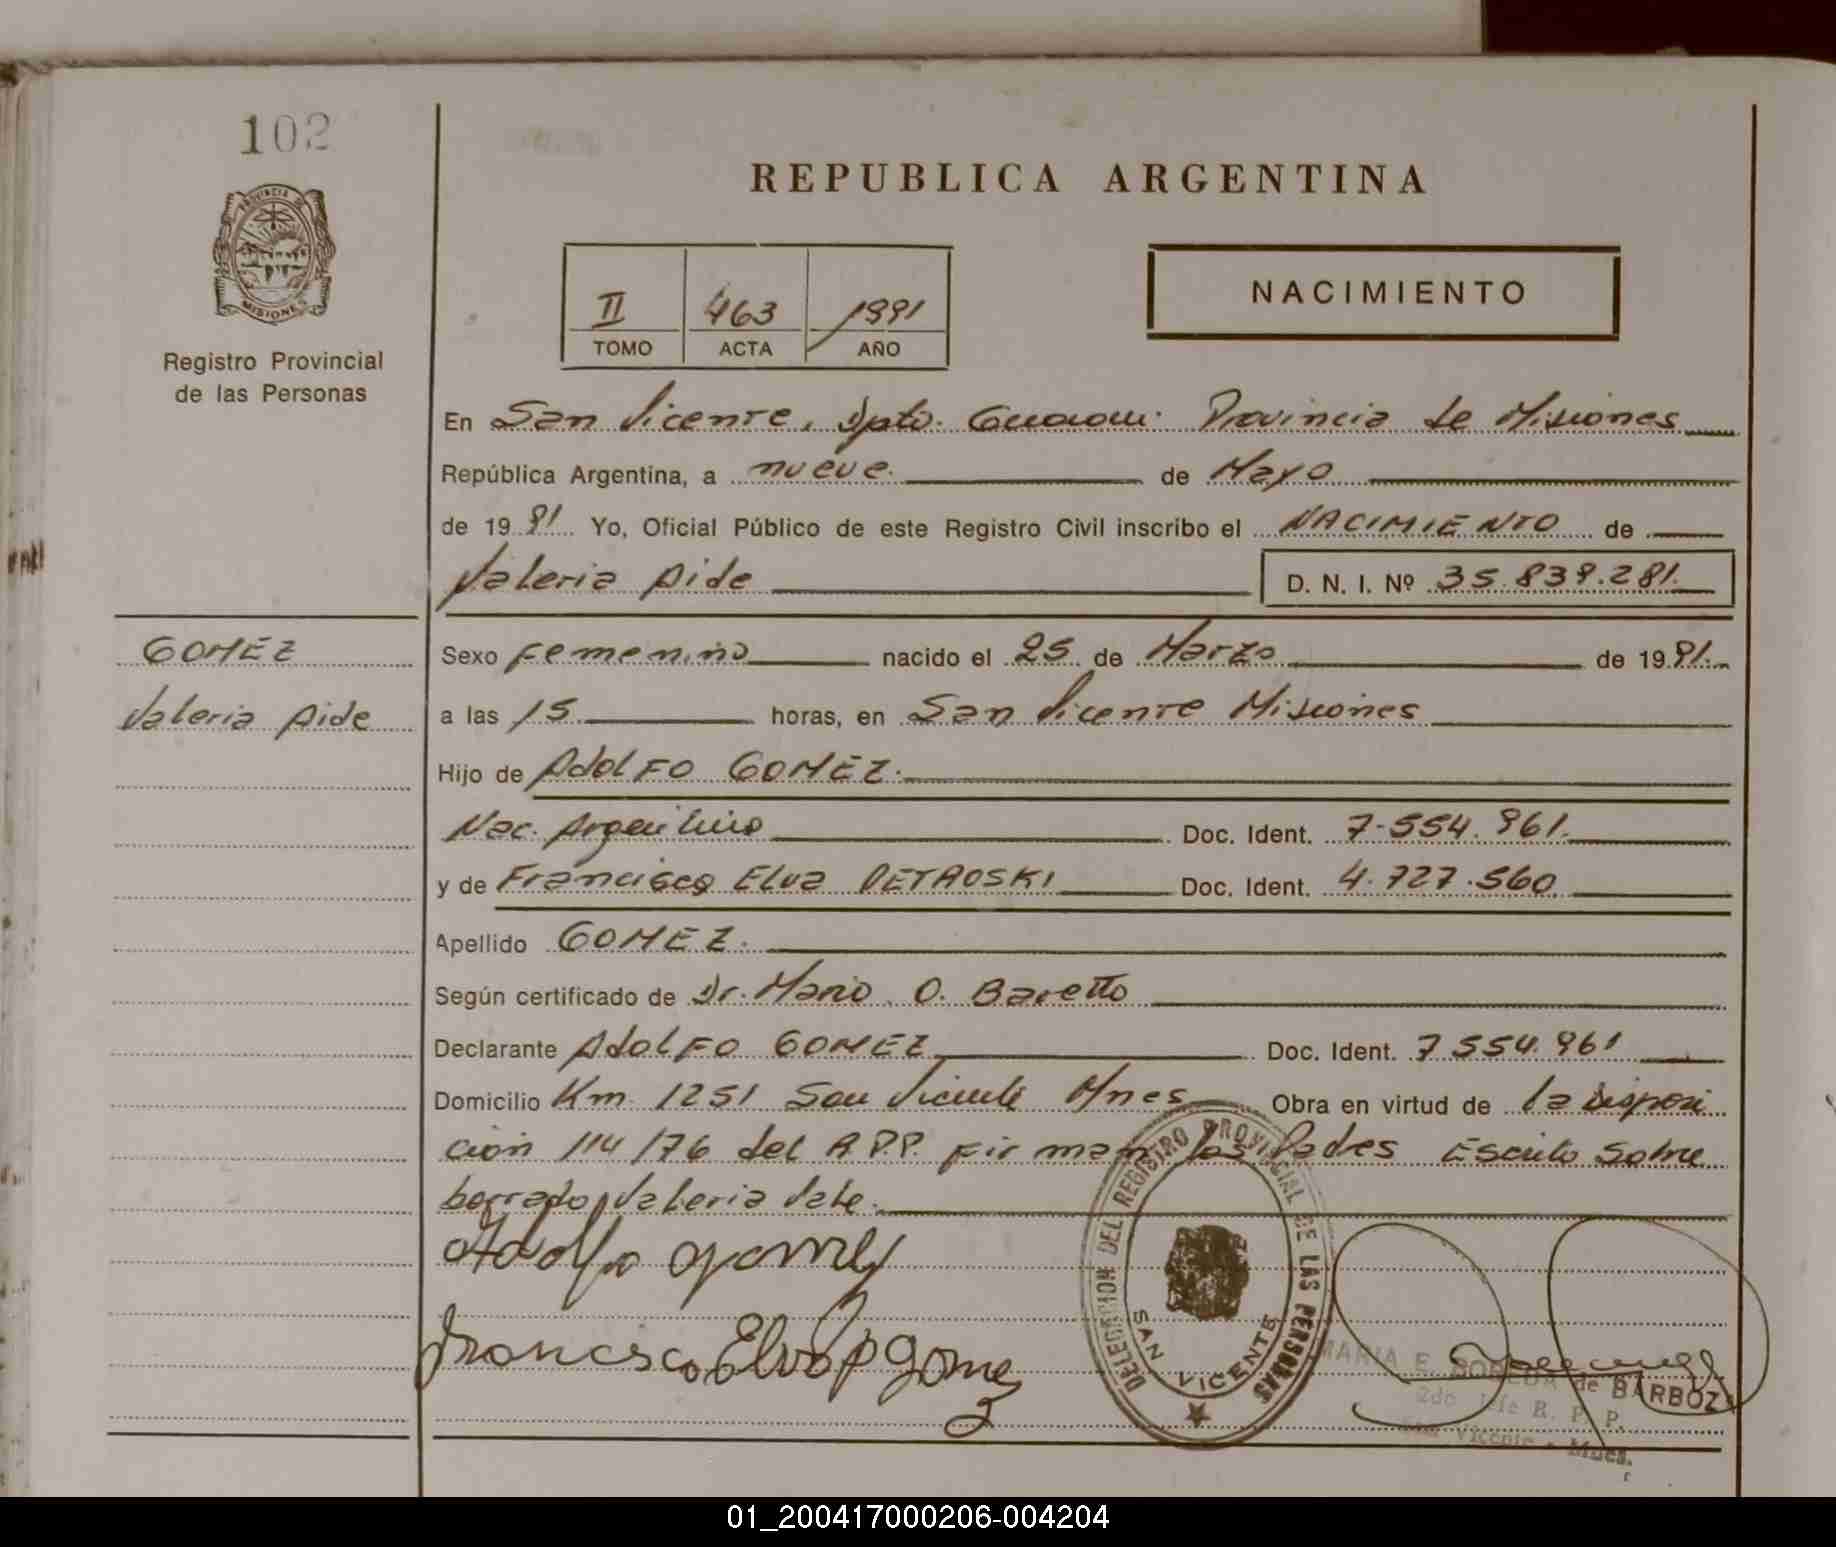 102
REPUBLICA ARGENTINA
PROVINCIA DE
MISIONES
Registro Provincial
de las Personas
II 463 1991
TOMO ACTA AÑO
NACIMIENTO
En San Vicente, Dpto. Guaraní. Provincia de Misiones
República Argentina, a nueve. de Mayo
de 1991 Yo, Oficial Público de este Registro Civil inscribo el NACIMIENTO de
Valeria Aide D. N. I. Nº 35.839.281.
GOMEZ
Valeria Aide
Sexo Femenino nacido el 25 de Marzo de 1991.
a las 15 horas, en San Vicente Misiones
Hijo de Adolfo GOMEZ.
Nac. Argentino Doc. Ident. 7.554.961.
y de Francisca Elva PETROSKI Doc. Ident. 4.727.560
Apellido GOMEZ.
Según certificado de Dr. Mario O. Baretto
Declarante Adolfo GOMEZ Doc. Ident. 7.554.961
Domicilio Km. 1251 San Vicente Mnes Obra en virtud de la disposi
ción 114/76 del R.P.P. firman los Padres Escrito sobre
borrado, Valeria Vale.
Adolfo gomez
Francisca Elva P gomez
DELEGACION DEL REGISTRO PROVINCIAL DE LAS PERSONAS
SAN VICENTE
MARIA E. de BARBOZA
2do Jefe R. P. P.
San Vicente - Mnes.
01_200417000206-004204